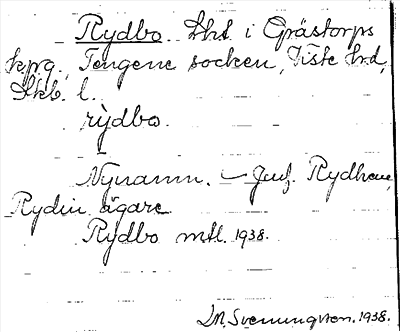 Rydbo. Lht. i Grästorps
kpg., Tengene socken, Viste hd,
Skb. l.
rỳdbo.
Nynamn. – Jmf. Rydhem,
Rydin, ägare
Rydbo mtl. 1938.
D.M. Svenungsson. 1938.